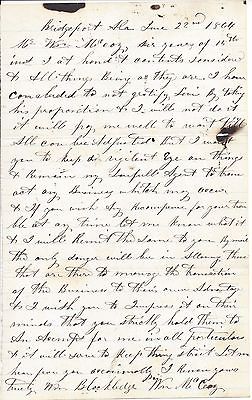 Bridgeport Ala June 22nd 1864
Mr. Wm McCoy, Sir yours of 15th
inst is at hand & contents considered
& All things Being as they are I have
concluded to not gratify Louis By taking
his proposition & I will not do it
it will pay me well to wait till
All can be Adjusted But I want
you to keep a vigilent Eye on things
& Remain my Lawfull Agent to trans
act any Business which may occur
& If you wish any Recompense for your trou
ble at any time let me know what it
& I will Remit the same to you By mail
the only danger will be in
that are there to manage the transaction
of the Business to their own Advantage
& I wish you to Impress it on their
minds that you strictly hold them to
An account for me in all particulars
& it will serve to Keep things strict Let me
hear from you occasionally I Remain yours
truly Wm Blackledge Wm McCoy